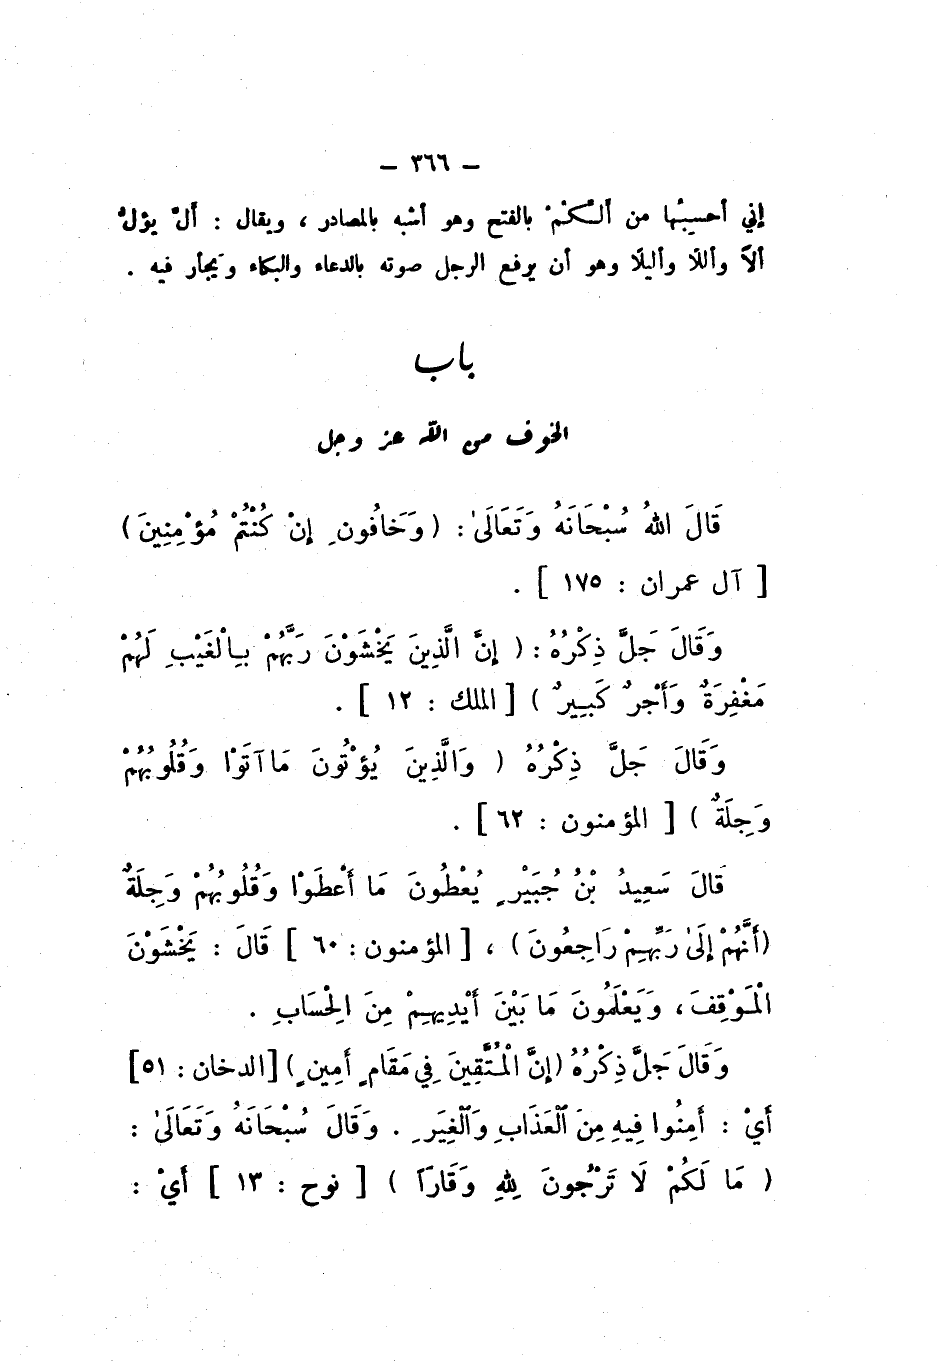 ـ ٣٦٦ ـ
إني أحسِبُها من أَلِّكُمْ بالفتح وهو أشبه بالمصادر ، ويقال : أَلَّ يؤلُّ
ألاًّ وأللًا وأليلًا وهو أن يرفع الرجل صوته بالدعاء والبكاء ويَجأر فيه .
باب
الخوف من الله عز وجل
قَالَ اللهُ سُبْحَانَهُ وَتَعَالَىٰ : ( وَخَافُونِ إِنْ كُنْتُمْ مُؤْمِنِينَ )
[ آل عمران : ١٧٥ ] .
وَقَالَ جَلَّ ذِكْرُهُ : ( إِنَّ الَّذِينَ يَخْشَوْنَ رَبَّهُمْ بِالْغَيْبِ لَهُمْ
مَغْفِرَةٌ وَأَجْرٌ كَبِيرٌ ) [ الملك : ١٢ ] .
وَقَالَ جَلَّ ذِكْرُهُ ( وَالَّذِينَ يُؤْتُونَ مَا آتَوْا وَقُلُوبُهُمْ
وَجِلَةٌ ) [ المؤمنون : ٦٢ ] .
قَالَ سَعِيدُ بْنُ جُبَيْرٍ يُعْطُونَ مَا أَعْطَوْا وَقُلُوبُهُمْ وَجِلَةٌ
(أَنَّهُمْ إِلَىٰ رَبِّهِمْ رَاجِعُونَ ) ، [ المؤمنون : ٦٠ ] قَالَ : يَخْشَوْنَ
الْمَوْقِفَ ، وَيَعْلَمُونَ مَا بَيْنَ أَيْدِيهِمْ مِنَ الْحِسَابِ .
وَقَالَ جَلَّ ذِكْرُهُ (إِنَّ الْمُتَّقِينَ فِي مَقَامٍ أَمِينٍ) [الدخان : ٥١]
أَيْ : أَمِنُوا فِيهِ مِنَ الْعَذَابِ وَالْغِيَرِ . وَقَالَ سُبْحَانَهُ وَتَعَالَىٰ :
( مَا لَكُمْ لَا تَرْجُونَ لِلّٰهِ وَقَارًا ) [ نوح : ١٣ ] أَيْ :